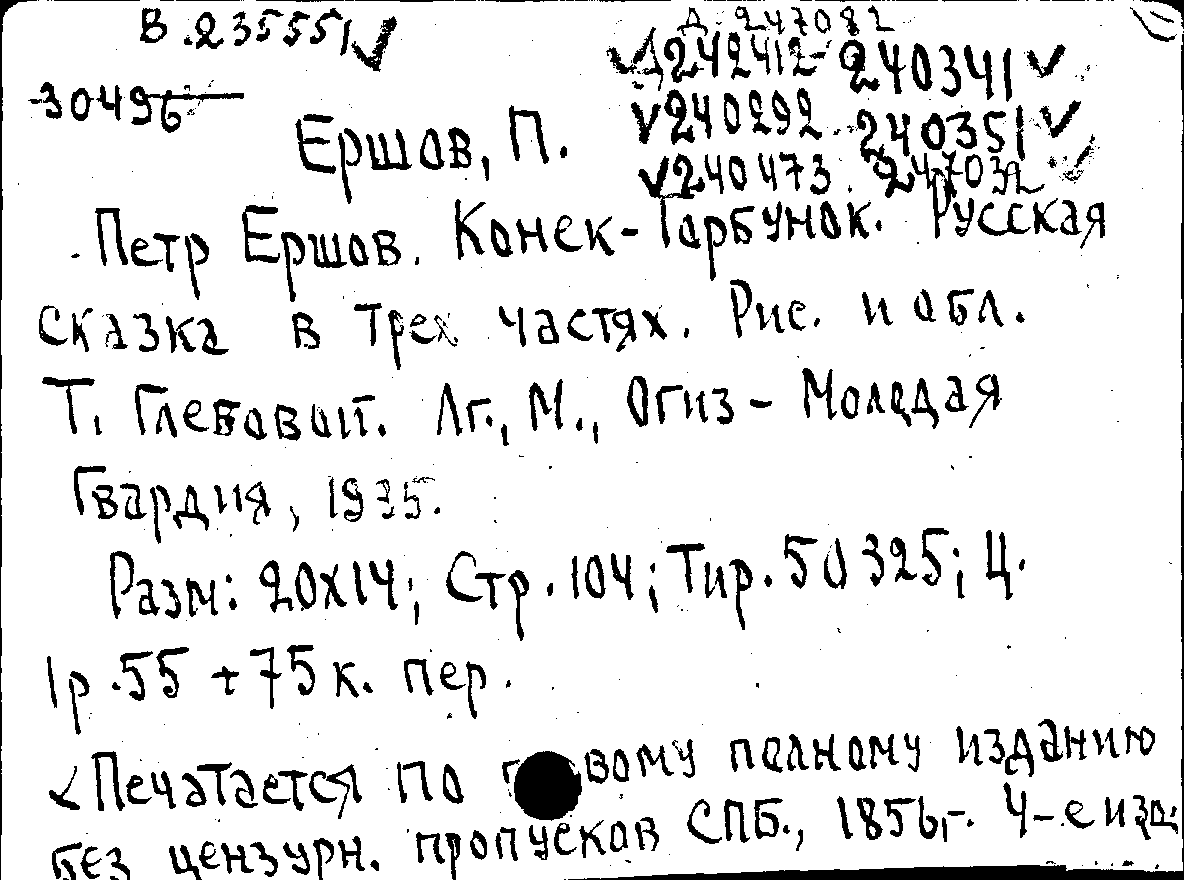 В.235551 ✓
Д. 247082
✓ Д242412- 240341 ✓
30496
✓240292. 240351 ✓
Ершов, П.
✓240473. 247032 ✓
Петр Ершов. Конек-Горбунок. Русская
сказка в трех частях. Рис. и обл.
Т. Глебовой. Лг., М., Огиз - Молодая
Гвардия, 1935.
Разм: 20х14; Стр. 104; Тир. 50325; Ц.
1р.55 + 75к. пер.
Печатается по вому полному изданию
без цензурн. пропусков СПБ., 1856,-. 4-е изд.